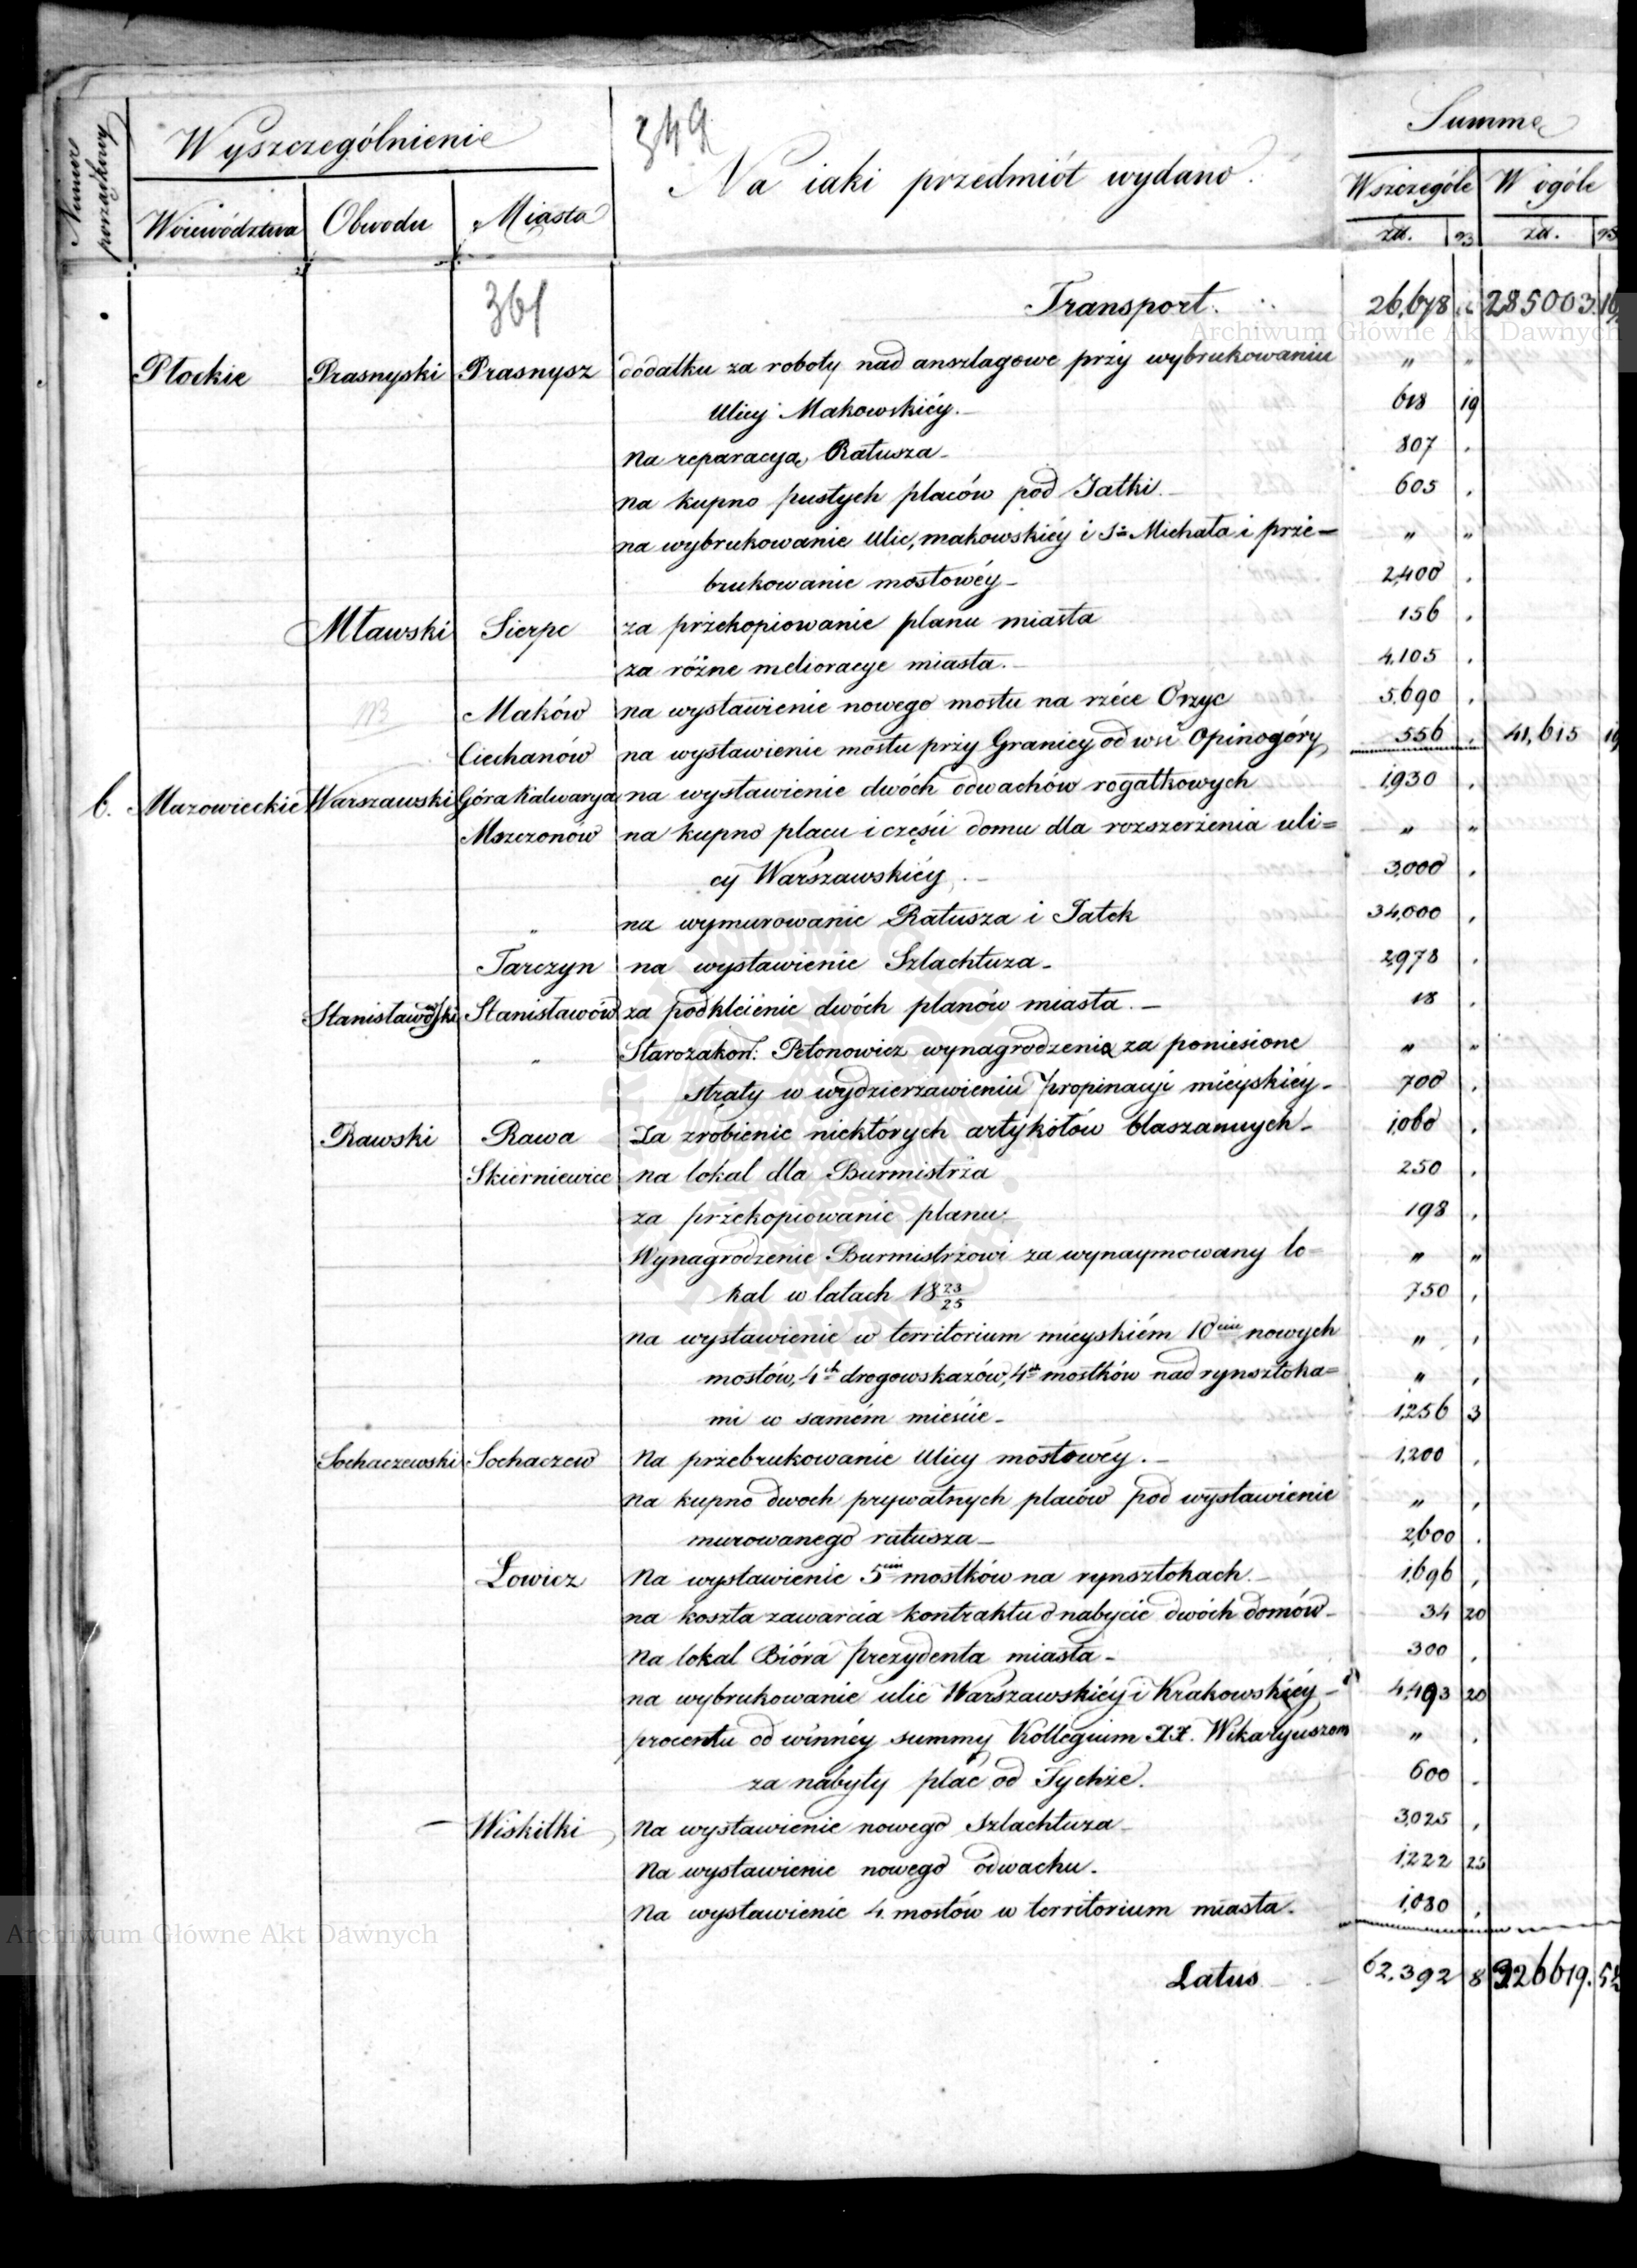 Numer porządkowy
Wyszczególnienie
349
Summa
Na iaki przedmiót wydano.
Wszczególe W ogóle
Woiewództwa Obwodu Miasta
zł. gr zł. gr
361
Transport. 26,678 285003.16
Archiwum Główne Akt Dawnych
Płockie Prasnyski Prasnysz dodatku za roboty nad anszlagowe przy wybrukowaniu " "
Ulicy Makowskiéy. 618 19
Na reparacyą Ratusza 807 .
na kupno pustych placów pod Jatki. 605 .
na wybrukowanie Ulic, makowskiéy i Sgo Michała i prze= " "
brukowanie mostowéy 2,400 .
Mławski Sierpc za przekopiowanie planu miasta 156 .
za różne melioracye miasta. 4,105 .
Maków na wystawienie nowego mostu na rzéce Orzyc 5,690 .
Ciechanów na wystawienie mostu przy Granicy od wsi Opinogóry 556 . 41,615 19
6. Mazowieckie Warszawski Góra Kalwarya na wystawienie dwóch odwachów rogatkowych 1,930 .
Mszczonów na kupno placu i części domu dla rozszerzenia uli= " "
cy Warszawskiéy. 3,000 .
" na wymurowanie Ratusza i Jatek 34,000 .
Tarczyn na wystawienie Szlachtuza 2,978 .
Stanisławowski Stanisławów za podkleienie dwóch planów miasta. 18 .
" Starozakon: Petonowicz wynagrodzenia za poniesione " "
straty w wydzierzawieniu propinacyi mieyskiéy 700 .
Rawski Rawa Za zrobienie niektórych artykółów blaszannych 1,060 .
Skierniewice na lokal dla Burmistrza 250 .
za przekopiowanie planu 198 .
Wynagrodzenie Burmistrzowi za wynaymowany lo= " "
kal w latach 18 23/25 750 .
na wystawienie w territorium mieyskiém 10ciu nowych " .
mostów, 4ch drogowskazów, 4ch mostków nad rynsztoka= " .
mi w samém mieście 1,256 3
Sochaczewski Sochaczew Na przebrukowanie Ulicy mostowéy. 1,200 .
na kupno dwoch prywatnych placów pod wystawienie " .
murowanego ratusza 2,600 .
Łowicz Na wystawienie 5ciu mostków na rynsztokach. 1,696 .
na koszta zawarcia kontraktu o nabycie dwóch domów 34 20
Na lokal Bióra prezydenta miasta 300 .
na wybrukowanie ulic Warszawskiéy i Krakowskiéy 4,493 20
procentu od winnéy summy Kollegium XX. Wikaryuszom " .
za nabyty plac od Tychże. 600 .
Wiskitki Na wystawienie nowego Szlachtuza 3,025 .
Na wystawienie nowego ódwachu. 1,222 25
Na wystawienie 4 mostów w territorium miasta. 1,080 .
Archiwum Główne Akt Dawnych
Latus 62,392 8 326619. 5